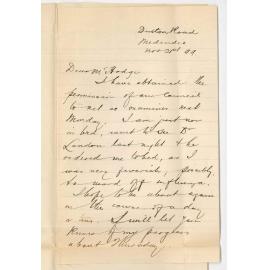 Duston Road
Nov 21st 99
Dear Mr Hodge
I have obtained the
permission of our Council
to act as examiner next
Monday. I am just now
in bed, went to see Dr
London last night & he
ordered me to bed, as I
was very feverish, possibly
an attack of influenza.
I hope to be about again
in the course of a day
or two. I will let you
know of my progress
about Thursday